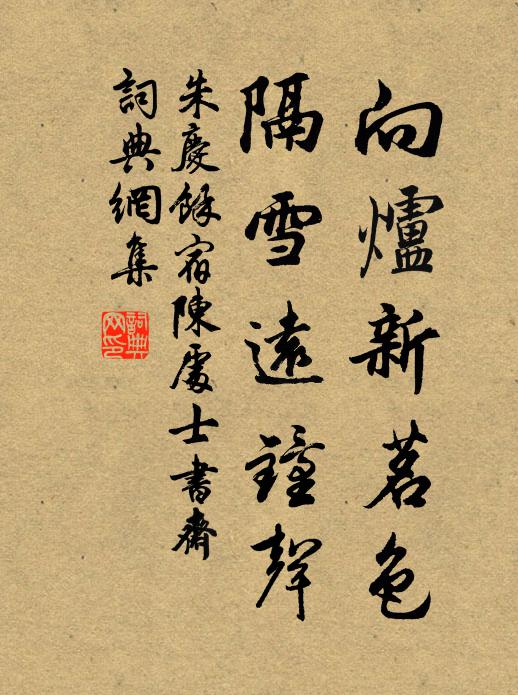 向爐新茗色
隔雪遠鐘聲
朱慶餘宿陳處士書齋
詞典網集
詞典網印